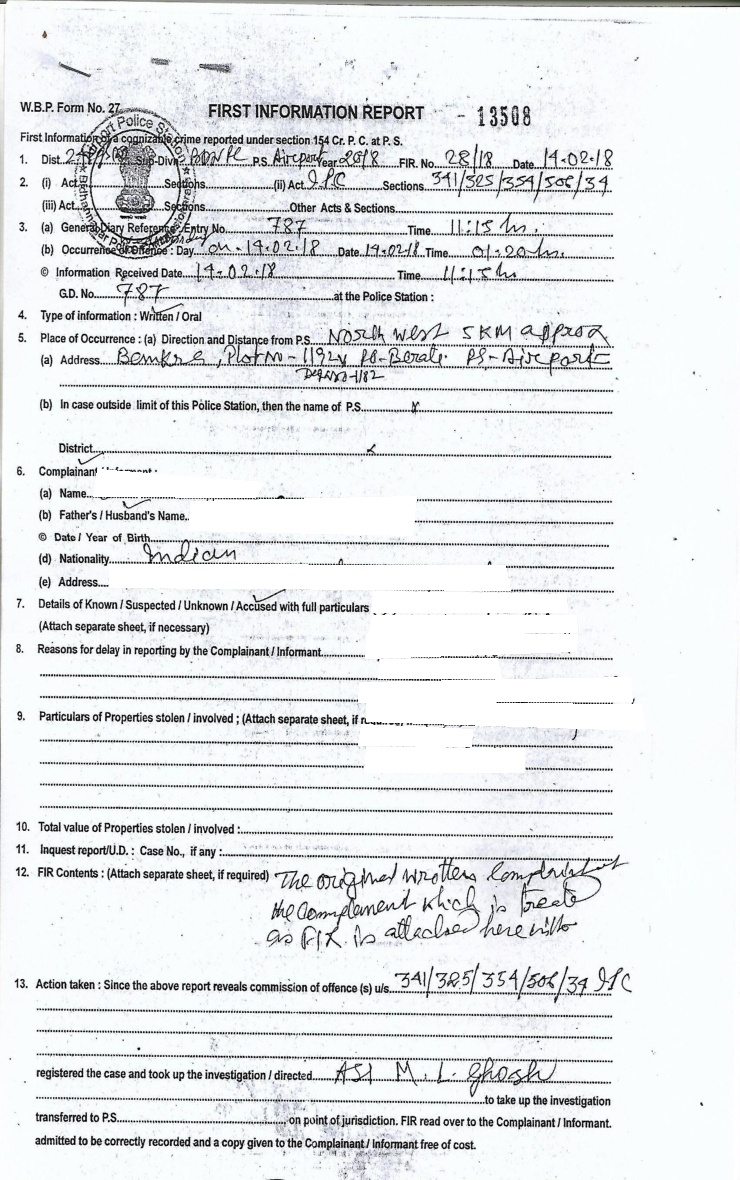 W.B.P. Form No. 27
FIRST INFORMATION REPORT - 13508
First Information of a cognizable crime reported under section 154 Cr. P. C. at P. S.
1. Dist. Sub-Divn. P.S. Airport Year 2018 FIR. No. 28/18 Date 14.02.18
2. (i) Act Sections (ii) Act I.P.C Sections 341/325/354/506/34
(iii) Act Sections Other Acts & Sections
3. (a) General Diary Reference : Entry No. 787 Time 11:15 hr.
(b) Occurrence of Offence : Day on. 14.02.18 Date 14.02.18 Time 01-20 hr.
© Information Received Date 14.02.18 Time 11:15 hr
G.D. No. 787 at the Police Station :
4. Type of information : Written / Oral
5. Place of Occurrence : (a) Direction and Distance from P.S. North West 5 KM approx
(a) Address PS-Airport
(b) In case outside limit of this Police Station, then the name of P.S. x
District x
6. Complainant
(a) Name
(b) Father's / Husband's Name
© Date / Year of Birth
(d) Nationality Indian
(e) Address
7. Details of Known / Suspected / Unknown / Accused with full particulars
(Attach separate sheet, if necessary)
8. Reasons for delay in reporting by the Complainant / Informant
9. Particulars of Properties stolen / involved ; (Attach separate sheet, if
10. Total value of Properties stolen / involved :
11. Inquest report/U.D. : Case No., if any :
12. FIR Contents : (Attach separate sheet, if required) The original written
the which is treate
as FIR is attached herewith
13. Action taken : Since the above report reveals commission of offence (s) u/s. 341/325/354/506/34 IPC
registered the case and took up the investigation / directed ASI M. L. Ghosh
to take up the investigation
transferred to P.S. on point of jurisdiction. FIR read over to the Complainant / Informant.
admitted to be correctly recorded and a copy given to the Complainant / Informant free of cost.